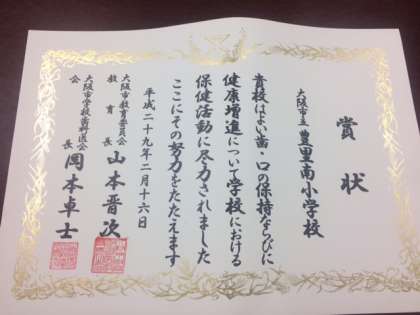 賞状
大阪市立 豊里南小学校
貴校はよい歯・口の保持ならびに
健康増進について学校における
保健活動に尽力されました
ここにその努力をたたえます
平成二十九年二月十六日
大阪市教育委員会
教育長 山本晋次
大阪市学校歯科医会
会長 岡本卓士